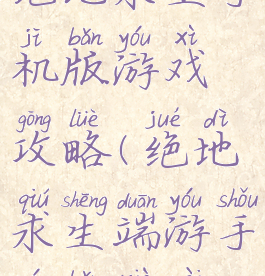 地地求生手
jī bǎn yóu xì
机版游戏
gōng lüè jué dì
攻略(绝地
qiú shēng duān yóu shǒu
求生端游手